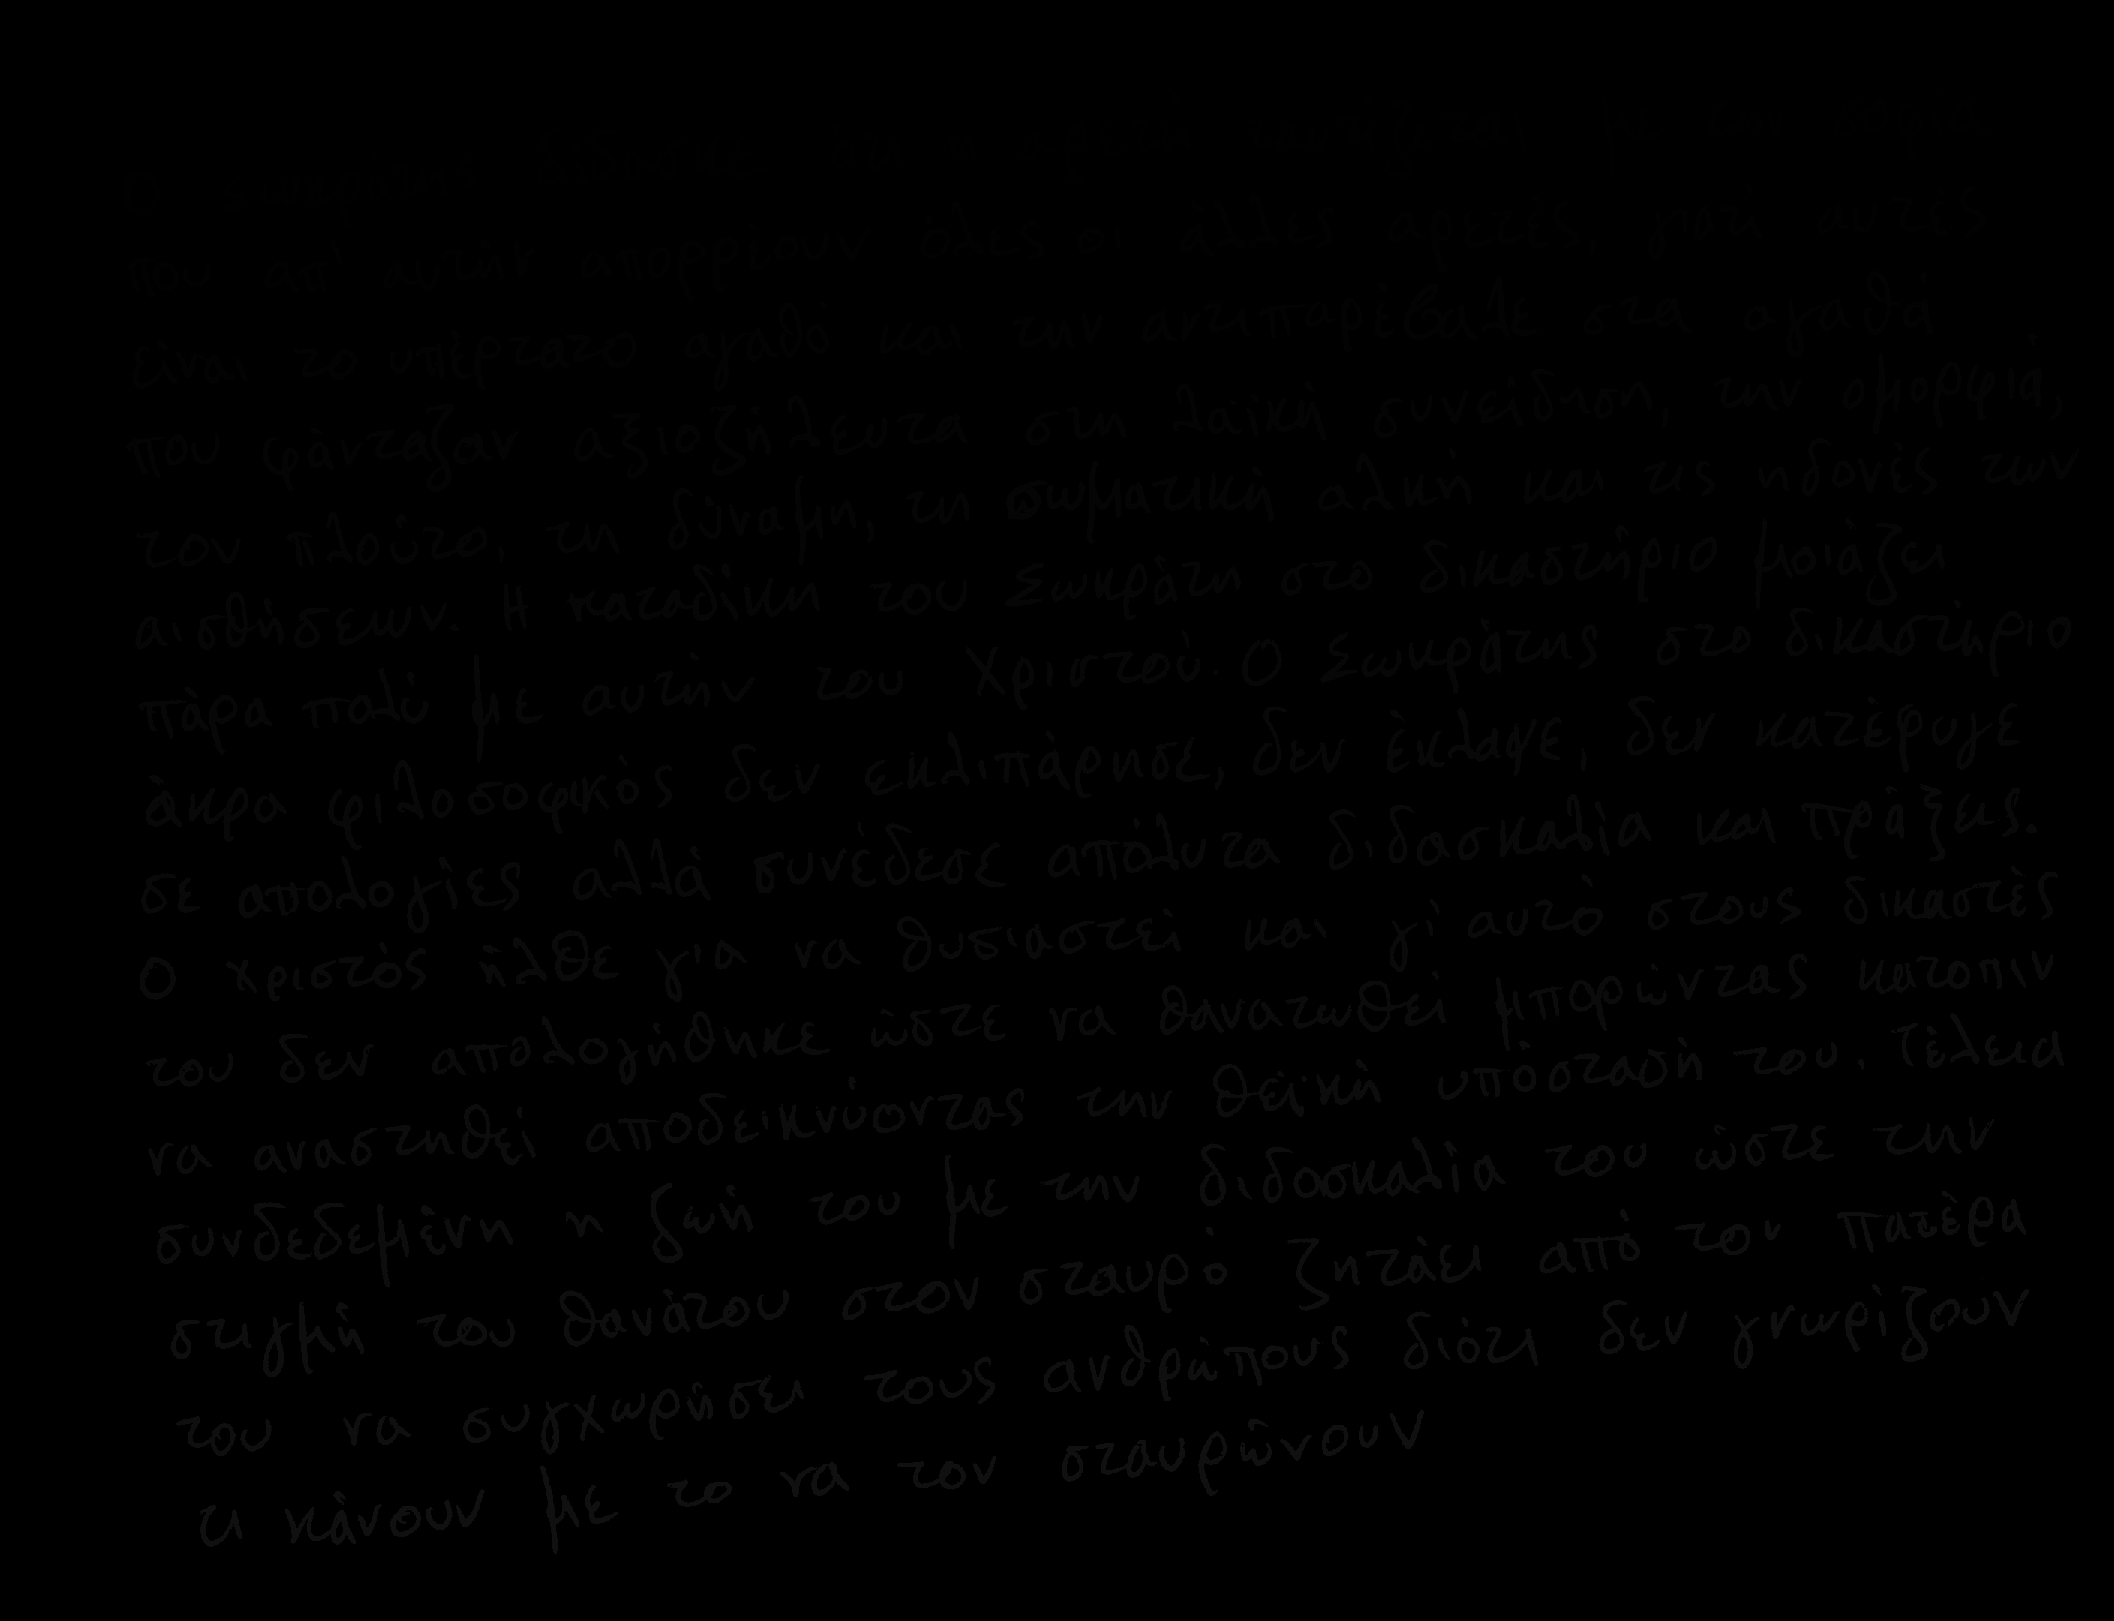 Ο Σωκράτης δίδασκε ότι η αρετή
που απ' αυτήν απορρίουν όλες οι άλλες αρετές, γιατί αυτές
είναι το υπέρτατο αγαθό και την αντιπαρέβαλε στα αγαθά
που φάνταζαν αξιοζήλευτα στη λαϊκή συνείδηση, την ομορφιά,
τον πλούτο, τη δύναμη, τη σωματική αλκή και τις ηδονές των
αισθήσεων. Η καταδίκη του Σωκράτη στο δικαστήριο μοιάζει
πάρα πολύ με αυτήν του Χριστού. Ο Σωκράτης στο δικαστήριο
άκρα φιλοσοφικός δεν εκλιπάρησε, δεν έκλαψε, δεν κατέφυγε
σε απολογίες αλλά συνέδεσε απόλυτα διδασκαλία και πράξεις.
Ο χριστός ήλθε για να θυσιαστεί και γι' αυτό στους δικαστές
του δεν απολογήθηκε ώστε να θανατωθεί μπορώντας κατοπιν
να αναστηθεί αποδεικνύοντας την θεϊκή υπόστασή του. Τέλεια
συνδεδεμένη η ζωή του με την διδασκαλία του ώστε την
στιγμή του θανάτου στον σταυρό ζητάει από τον πατέρα
του να συγχωρήσει τους ανθρώπους διότι δεν γνωρίζουν
τι κάνουν με το να τον σταυρώνουν